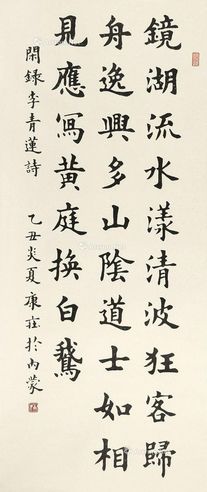 鏡湖流水漾清波狂客歸
舟逸興多山陰道士如相
見應寫黃庭換白鵞
閑錄李青蓮詩
乙丑炎夏康莊於內蒙